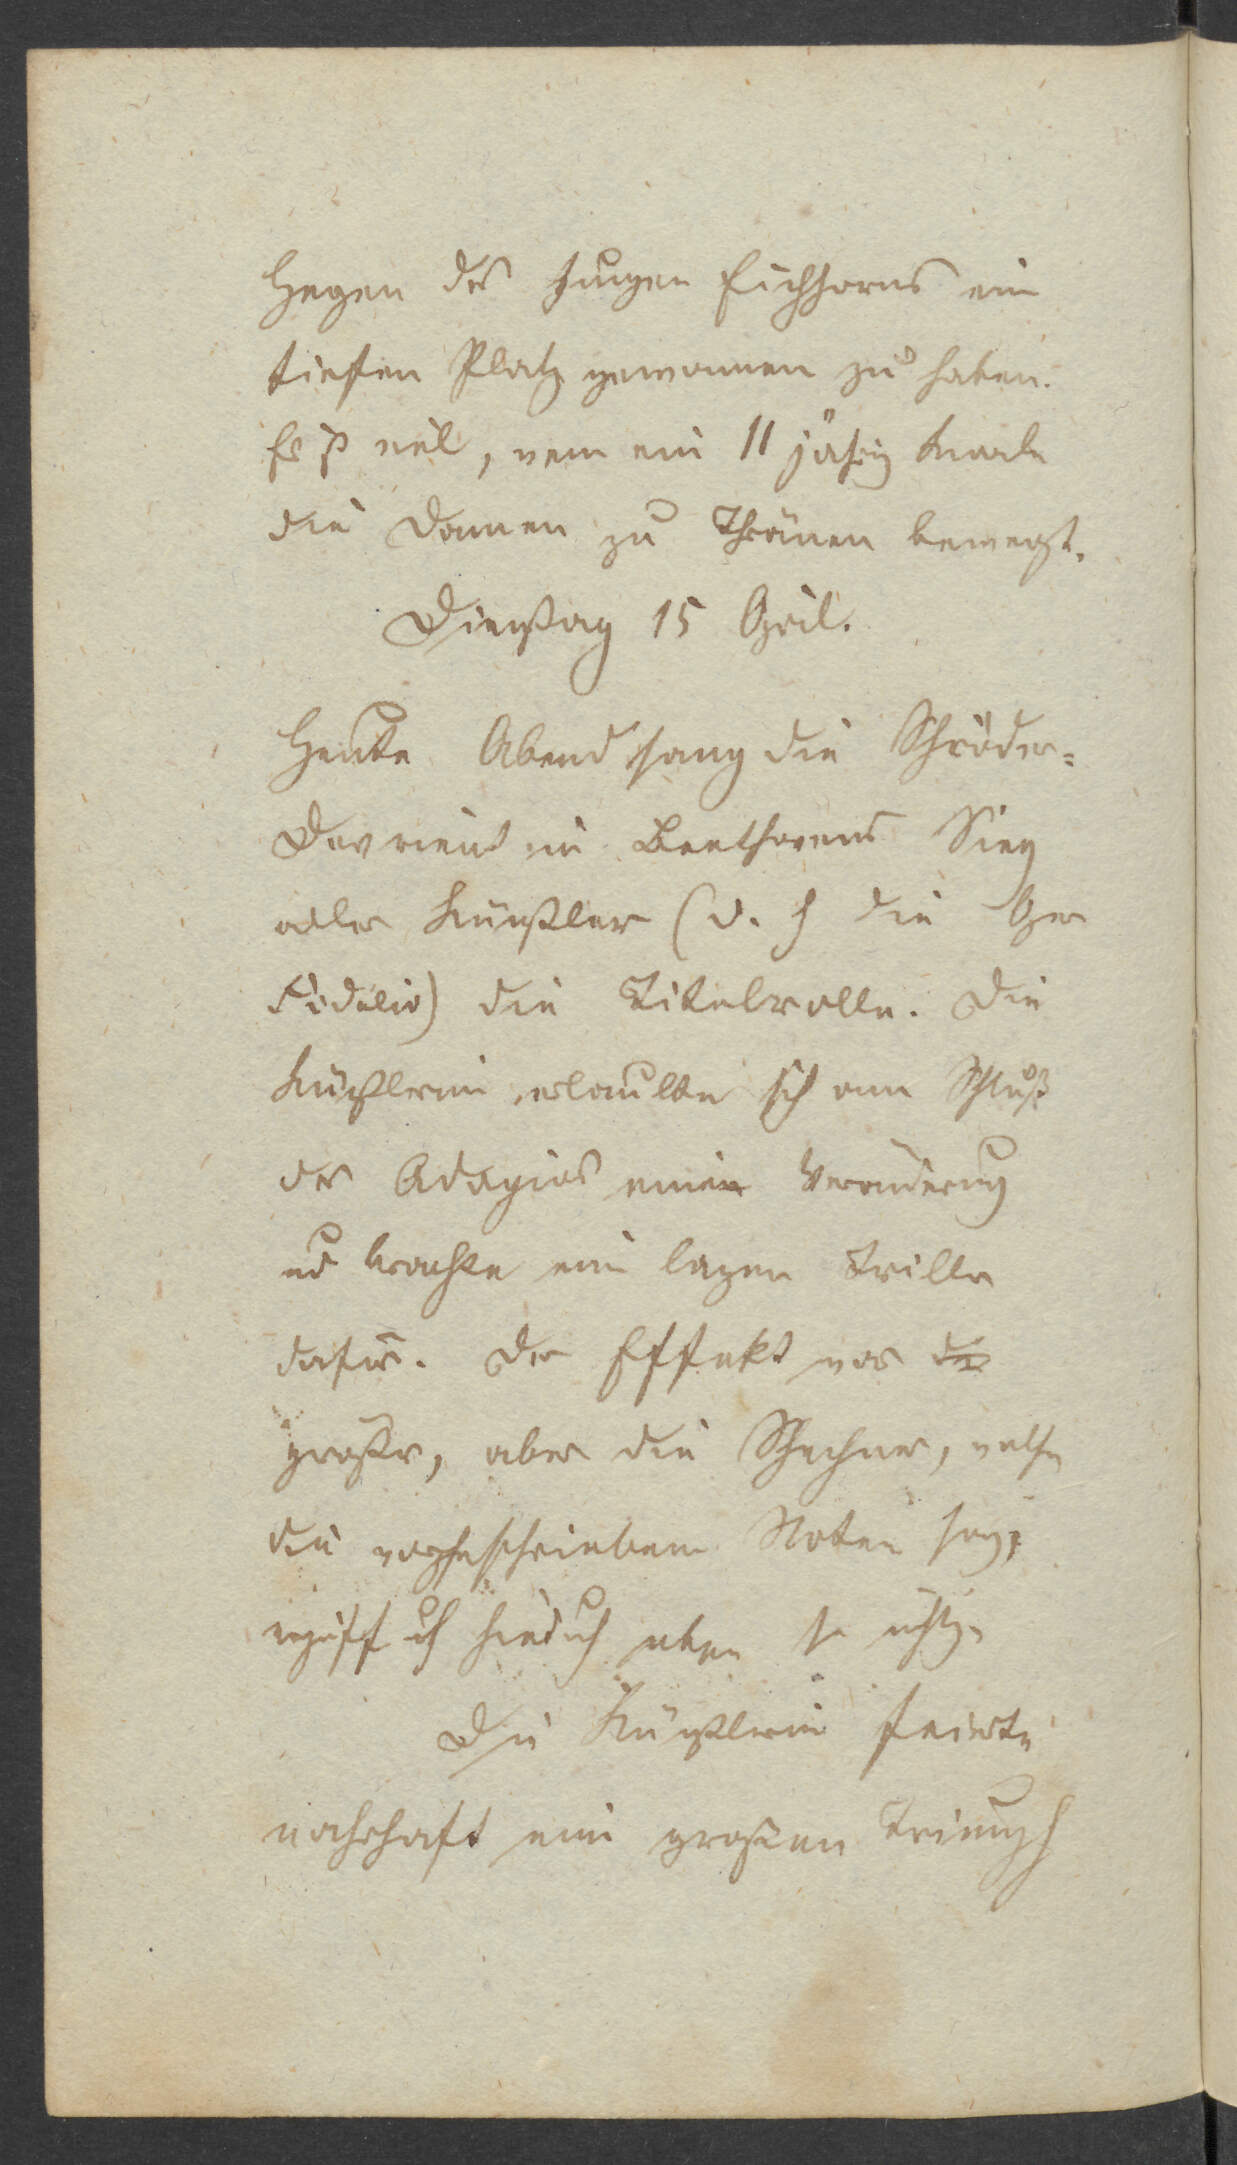 Hegen des jungen Eichhorns ein
tiefen Platz gewonnen zu haben.
Es ist viel, wen ein 11 jährig Knabe
die Damen zu Thränen bewegt.
Dienstag 15 April.
Heute Abend sang die Schröder-
Devrient in Beethovens Sieg
aller Künstler (d. h die Oper
Fidelio) die Titelrolle. Die
Künstlerin erlaubte sich am Schluß
des Adagios eine Veränderung
und brachte ein langen Triller
dafür. Der Effekt war
größer, aber die Schechner, welche
die vorgeschriebenen Noten sang,
ergriff uch hiedurch eben so
Die Künstlerin feierte
wahrhaft ein großen Triumph